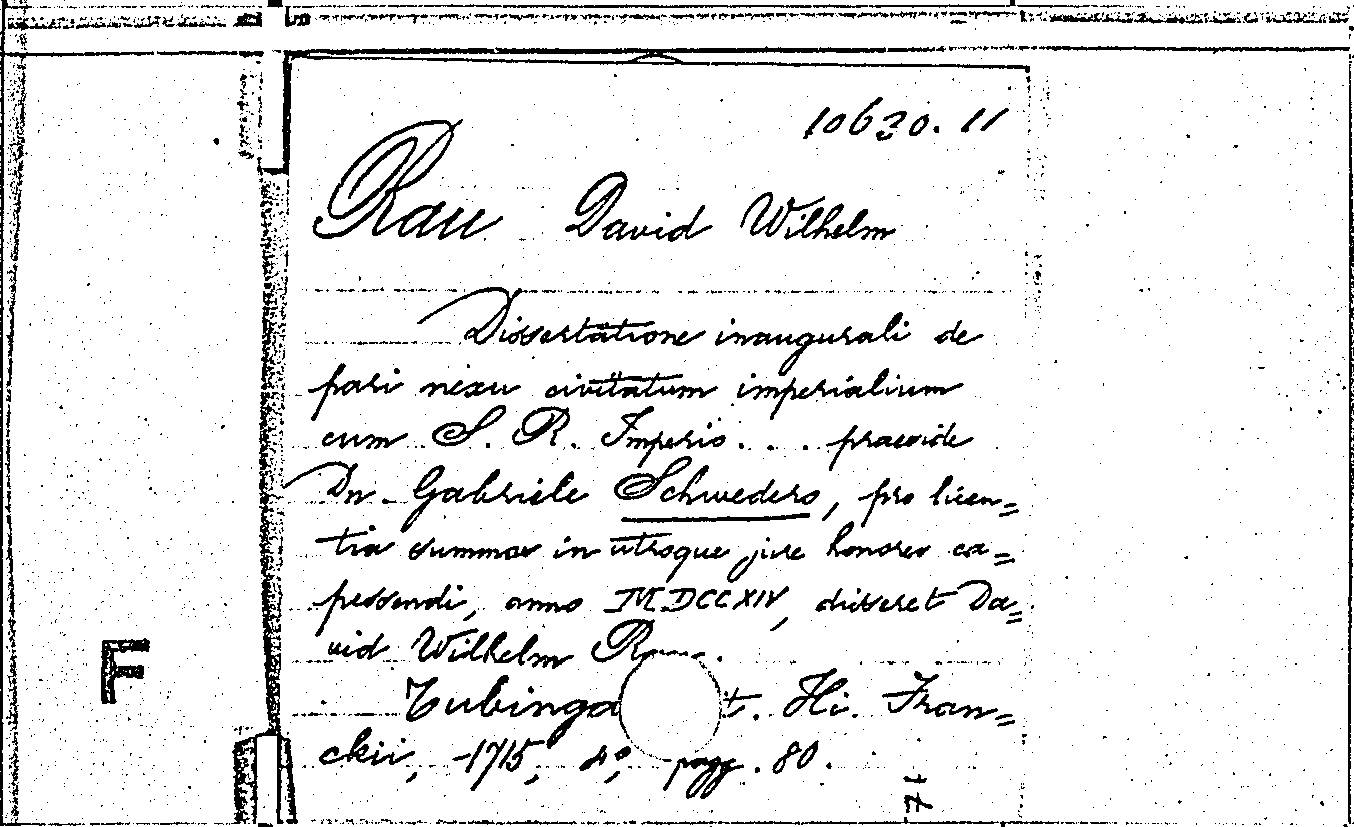 10630. 11
Rau David Wilhelm
Dissertatione inaugurali de
pari nexu civitatum imperialium
cum S. R. Imperio . . . praeside
Dn. Gabriele Schwedero, pro licen=
tia summos in utroque jure honores ca=
pessendi, anno MDCCXIV, disseret Da=
vid Wilhelm
t. Hi. Fran=
ckii, 1715, pagg. 80.
F